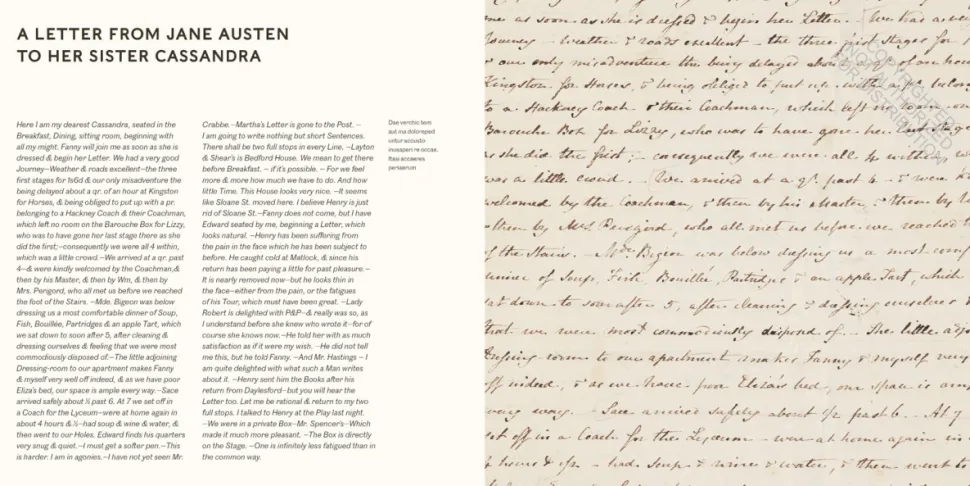 A LETTER FROM JANE AUSTEN
TO HER SISTER CASSANDRA
Here I am my dearest Cassandra, seated in the
Breakfast, Dining, sitting room, beginning with
all my might. Fanny will join me as soon as she is
dressed & begin her Letter. We had a very good
Journey–Weather & roads excellent–the three
first stages for 1s6d & our only misadventure the
being delayed about a qr. of an hour at Kingston
for Horses, & being obliged to put up with a pr.
belonging to a Hackney Coach & their Coachman,
which left no room on the Barouche Box for Lizzy,
who was to have gone her last stage there as she
did the first;–consequently we were all 4 within,
which was a little crowd.–We arrived at a qr. past
4–& were kindly welcomed by the Coachman,&
then by his Master, & then by Wm, & then by
Mrs. Perigord, who all met us before we reached
the foot of the Stairs. –Mde. Bigeon was below
dressing us a most comfortable dinner of Soup,
Fish, Bouillée, Partridges & an apple Tart, which
we sat down to soon after 5, after cleaning &
dressing ourselves & feeling that we were most
commodiously disposed of.–The little adjoining
Dressing-room to our apartment makes Fanny
& myself very well off indeed, & as we have poor
Eliza's bed, our space is ample every way.–Sace
arrived safely about ½ past 6. At 7 we set off in
a Coach for the Lyceum–were at home again in
about 4 hours & ½–had soup & wine & water, &
then went to our Holes. Edward finds his quarters
very snug & quiet.–I must get a softer pen.–This
is harder. I am in agonies.–I have not yet seen Mr.
Crabbe.–Martha's Letter is gone to the Post. –
I am going to write nothing but short Sentences.
There shall be two full stops in every Line. –Layton
& Shear's is Bedford House. We mean to get there
before Breakfast. – if it's possible. – For we feel
more & more how much we have to do. And how
little Time. This House looks very nice. –It seems
like Sloane St. moved here. I believe Henry is just
rid of Sloane St.–Fanny does not come, but I have
Edward seated by me, beginning a Letter, which
looks natural. –Henry has been suffering from
the pain in the face which he has been subject to
before. He caught cold at Matlock, & since his
return has been paying a little for past pleasure. –
It is nearly removed now–but he looks thin in
the face–either from the pain, or the fatigues
of his Tour, which must have been great. –Lady
Robert is delighted with P&P–& really was so, as
I understand before she knew who wrote it–for of
course she knows now.–He told her with as much
satisfaction as if it were my wish. –He did not tell
me this, but he told Fanny. –And Mr. Hastings – I
am quite delighted with what such a Man writes
about it. –Henry sent him the Books after his
return from Daylesford–but you will hear the
Letter too. Let me be rational & return to my two
full stops. I talked to Henry at the Play last night.
–We were in a private Box–Mr. Spencer's–Which
made it much more pleasant. –The Box is directly
on the Stage. –One is infinitely less fatigued than in
the common way.
Dae verchic tem
aut ma doloreped
untur accusto
inusapernaque occae.
Itasi accaeres
persperion
me as soon as she is dressed & begin her Letter. We had a
Journey – Weather & roads excellent – the three first stages for
& our only misadventure the being delayed about a qr. of an hour
Kingston for Horses, & being obliged to put up with a pr. belong
to a Hackney Coach & their Coachman, which left no room on
Barouche Box for Lizzy, who was to have gone her last stage
as she did the first; – consequently we were all 4 within,
was a little crowd. – We arrived at a qr. past 4 – & were
welcomed by the Coachman, & then by his Master, & then by
& then by Mrs. Perigord, who all met us before we reached
of the Stairs. – Mde. Bigeon was below dressing us a most
dinner of Soup, Fish, Bouillée, Partridges & an apple Tart, which
sat down to soon after 5, after cleaning & dressing ourselves &
that we were most commodiously disposed of. – The little
Dressing-room to our apartment makes Fanny & myself very
off indeed, & as we have poor Eliza's bed, our space is
every way. – Sace arrived safely about 1/2 past 6. At 7
set off in a Coach for the Lyceum – were at home again in
4 hours & 1/2 – had soup & wine & water, & then went to
COPYRIGHTED
NOT AUTHORISED
FOR DISTRIBUTION